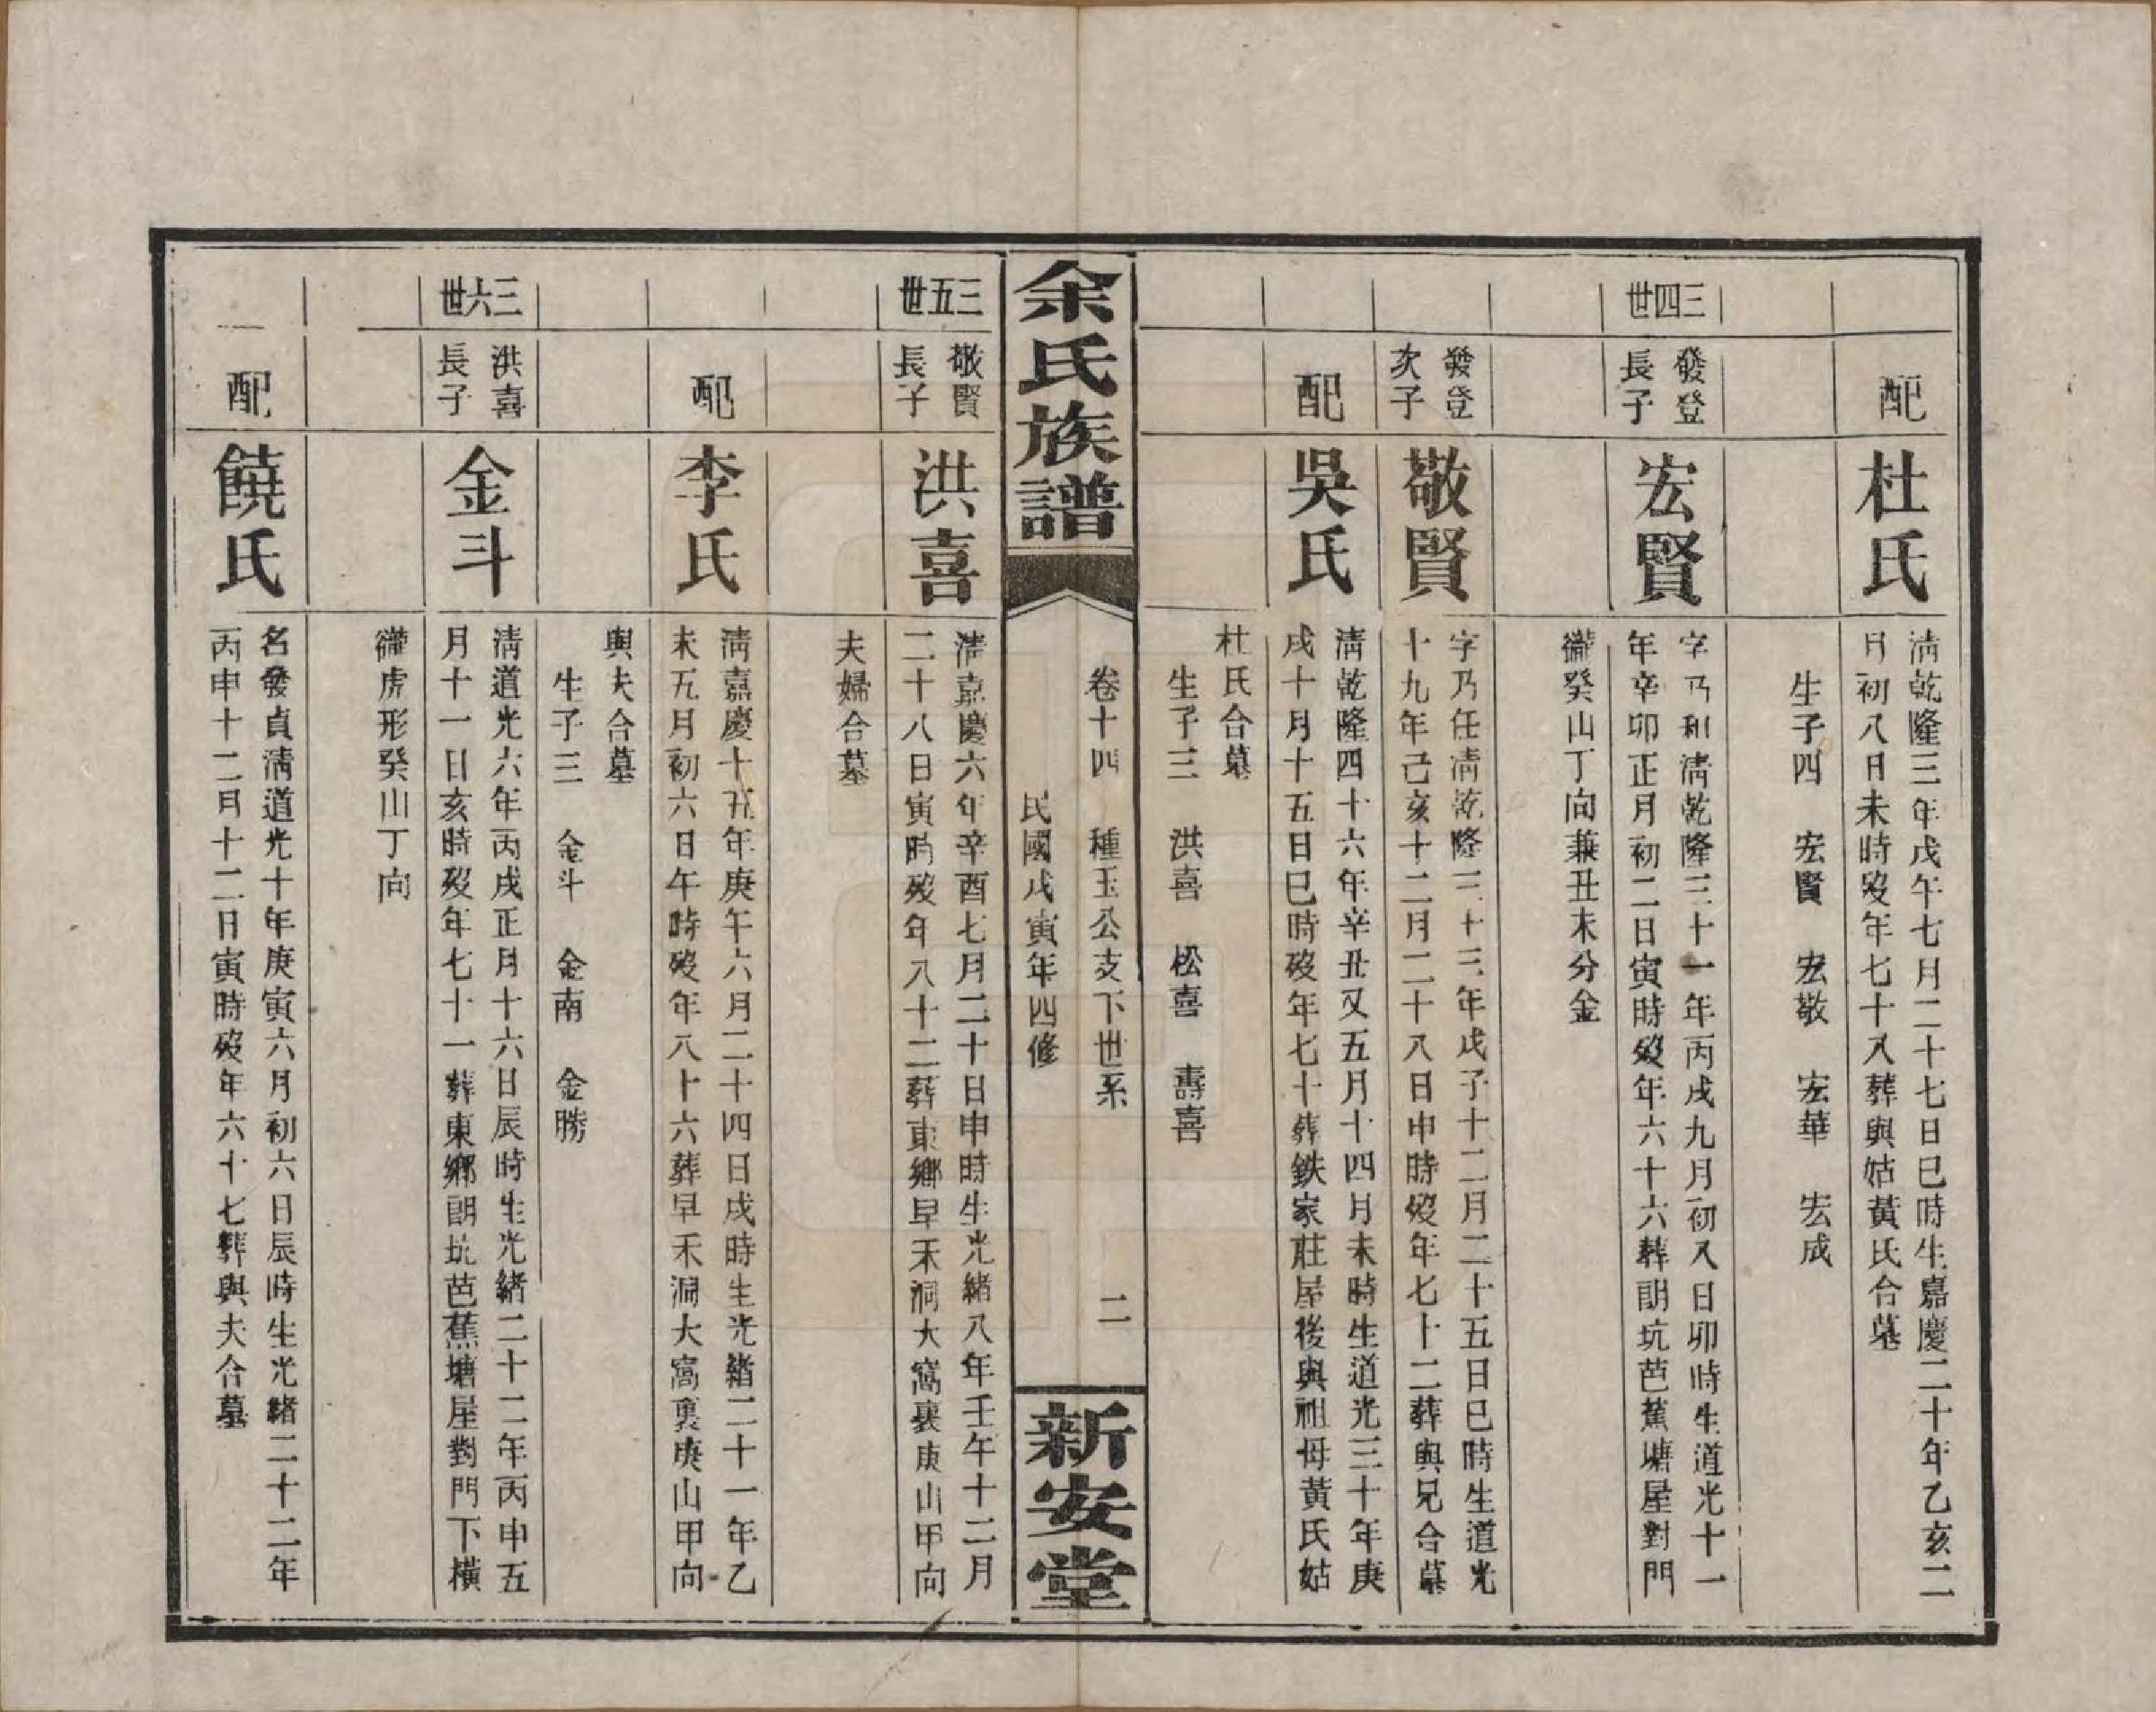 配
杜氏
清乾隆三年戊午七月二十七日巳時生嘉慶二十年乙亥二
月初八日未時歿年七十八葬與姑黃氏合墓
生子四　宏賢　宏敬　宏華　宏成
三四世
發登
長子
宏賢
字乃和清乾隆三十一年丙戌九月初八日卯時生道光十一
年辛卯正月初二日寅時歿年六十六葬朗坑芭蕉塘屋對門
癸山丁向兼丑未分金
發登
次子
敬賢
字乃任清乾隆三十三年戊子十二月二十五日巳時生道光
十九年己亥十二月二十八日申時歿年七十二葬與兄合墓
配
吳氏
清乾隆四十六年辛丑又五月十四月未時生道光三十年庚
戌十月十五日巳時歿年七十葬鉄家莊屋後與祖母黃氏姑
杜氏合墓
生子三　洪喜　松喜　壽喜
余氏族譜
卷十四　種玉公支下世系　二
民國戊寅年四修
新安堂
三五世
敬賢
長子
洪喜
清嘉慶六年辛酉七月二十日申時生光緒八年壬午十二月
二十八日寅時歿年八十二葬東鄉早禾洞大窩裏庚山甲向
夫婦合墓
配
李氏
清嘉慶十五年庚午六月二十四日戌時生光緒二十一年乙
未五月初六日午時歿年八十六葬早禾洞大窩裏庚山甲向
與夫合墓
生子三　金斗　金南　金勝
三六世
洪喜
長子
金斗
清道光六年丙戌正月十六日辰時生光緒二十二年丙申五
月十一日亥時歿年七十一葬東鄉朗坑芭蕉塘屋對門下橫
虎形癸山丁向
配
饒氏
名發貞清道光十年庚寅六月初六日辰時生光緒二十二年
丙申十二月十二日寅時歿年六十七葬與夫合墓